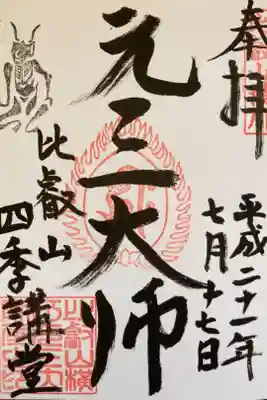 奉拝
平成二十一年
七月十七日
元三大師
比叡山
四季講堂